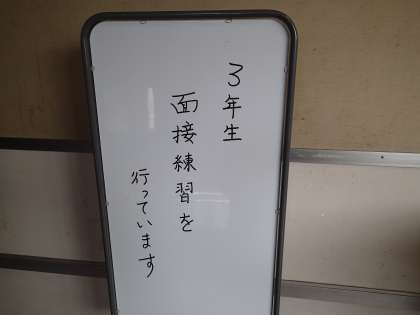 3年生
面接練習を
行っています